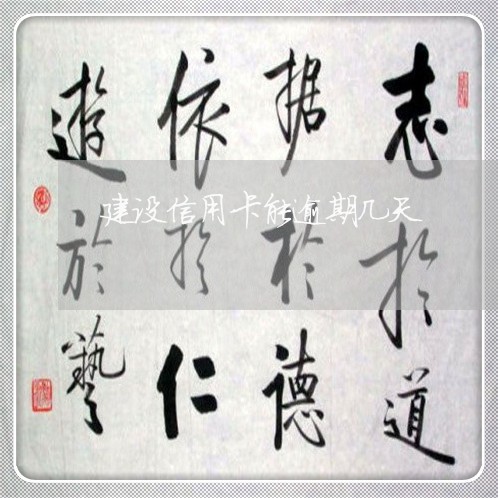 志於道
据於德
依於仁
遊於藝
建设信用卡能逾期几天